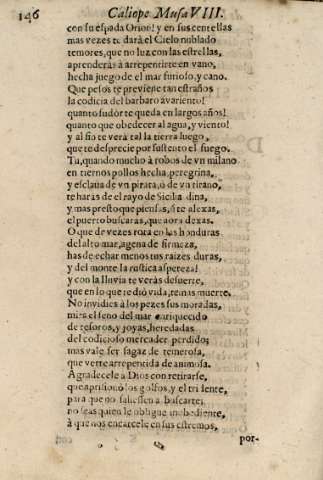 146 Caliope Musa VIII.
con su espada Orion! y en sus centellas
mas vezes te darà el Cielo nublado
temores, que no luz con las estrellas,
aprenderàs à arrepentirte en vano,
hecha juego de el mar furioso, y cano.
Que pesos te previene tan estraños
la codicia del barbaro avariento!
quanto sudor te queda en largos años!
quanto que obedecer al agua, y viento!
y al fio te verà tal la tierra luego,
que te desprecie por sustento el fuego.
Tu, quando mucho à robos de vn milano
en tiernos pollos hecha, peregrina,
y esclaua de vn pirata, ò de vn tirano,
te haràs de el rayo de Sicilia dina,
y mas presto que piensas, si te alexas,
el puerto buscaràs, que aora dexas.
O que de vezes rota en las honduras
del alto mar, agena de firmeza,
has de echar menos tus raizes duras,
y del monte la rustica aspereza!
y con la lluvia te veràs de suerte,
que en lo que te diò vida, temas muerte.
No invidies à los pezes sus moradas,
mira el seno del mar enriquecido
de tesoros, y joyas, heredadas
del codicioso mercader perdido;
mas vale ser sagaz de temerosa,
que verte arrepentida de animosa.
Agradecele à Dios con retirarte,
que aprisionò los golfos, y el tridente,
para que no saliessen à buscarte;
no seas quien le obligue inobediente,
à que nos encarcele en sus estremos,
por-